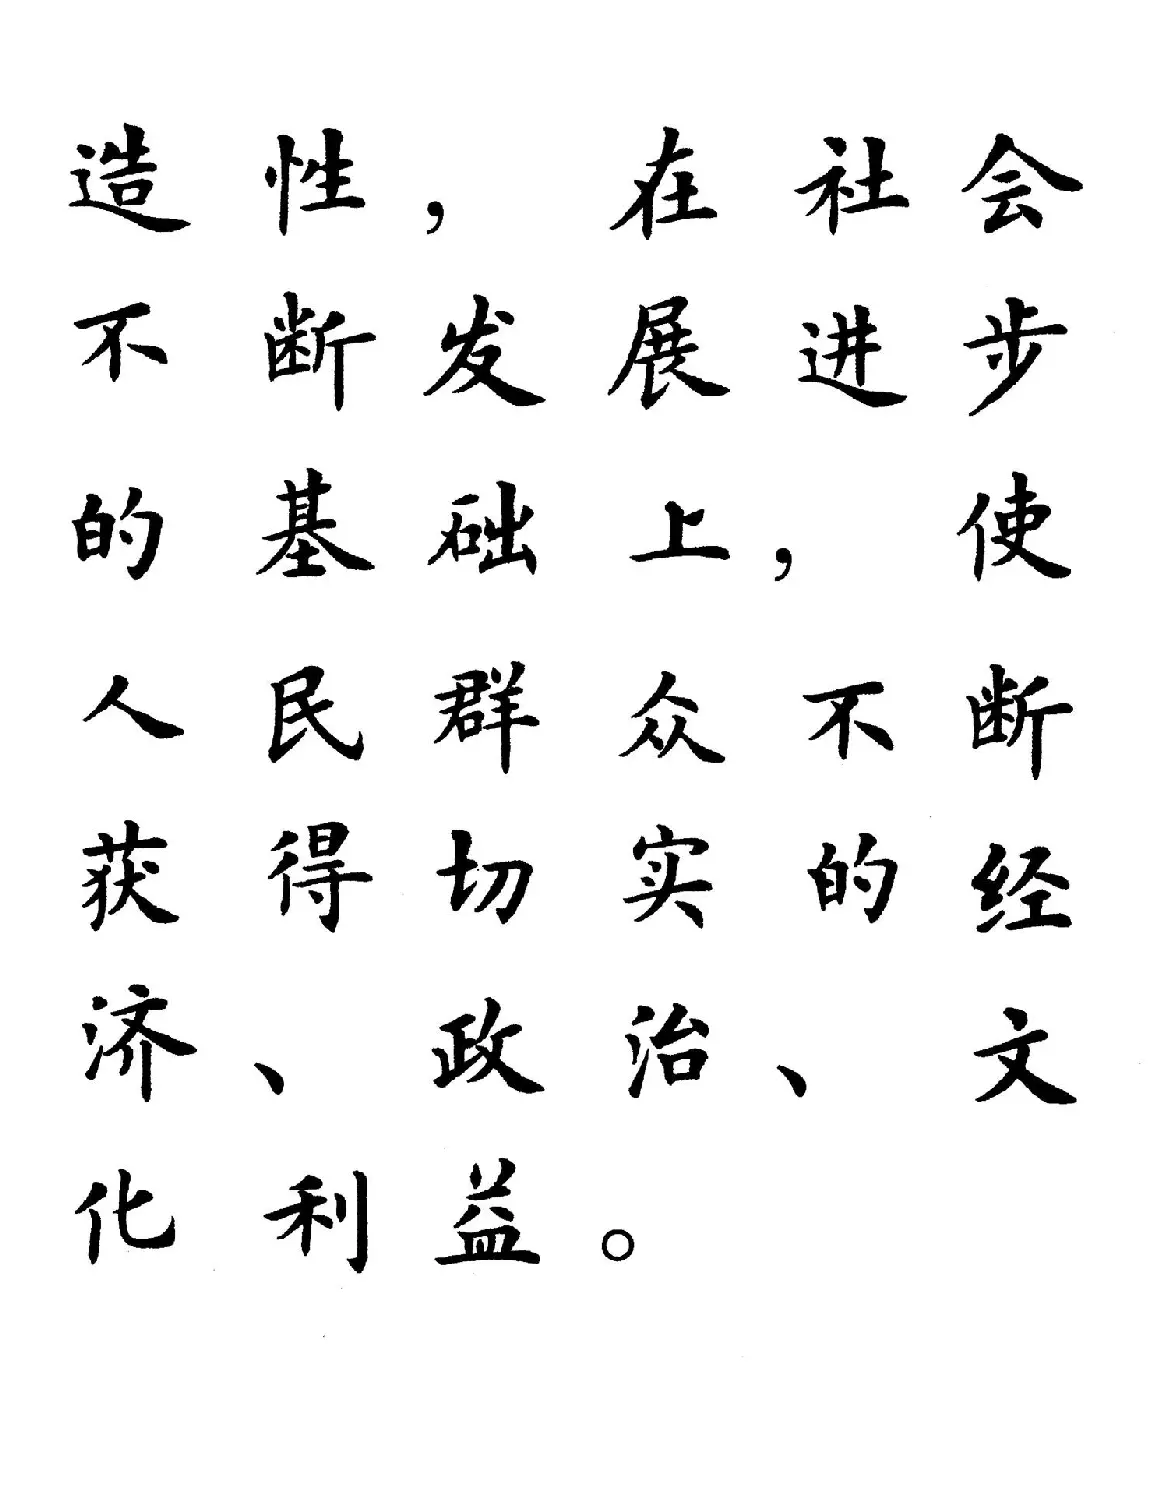 造性，在社会
不断发展进步
的基础上，使
人民群众不断
获得切实的经
济、政治、文
化利益。